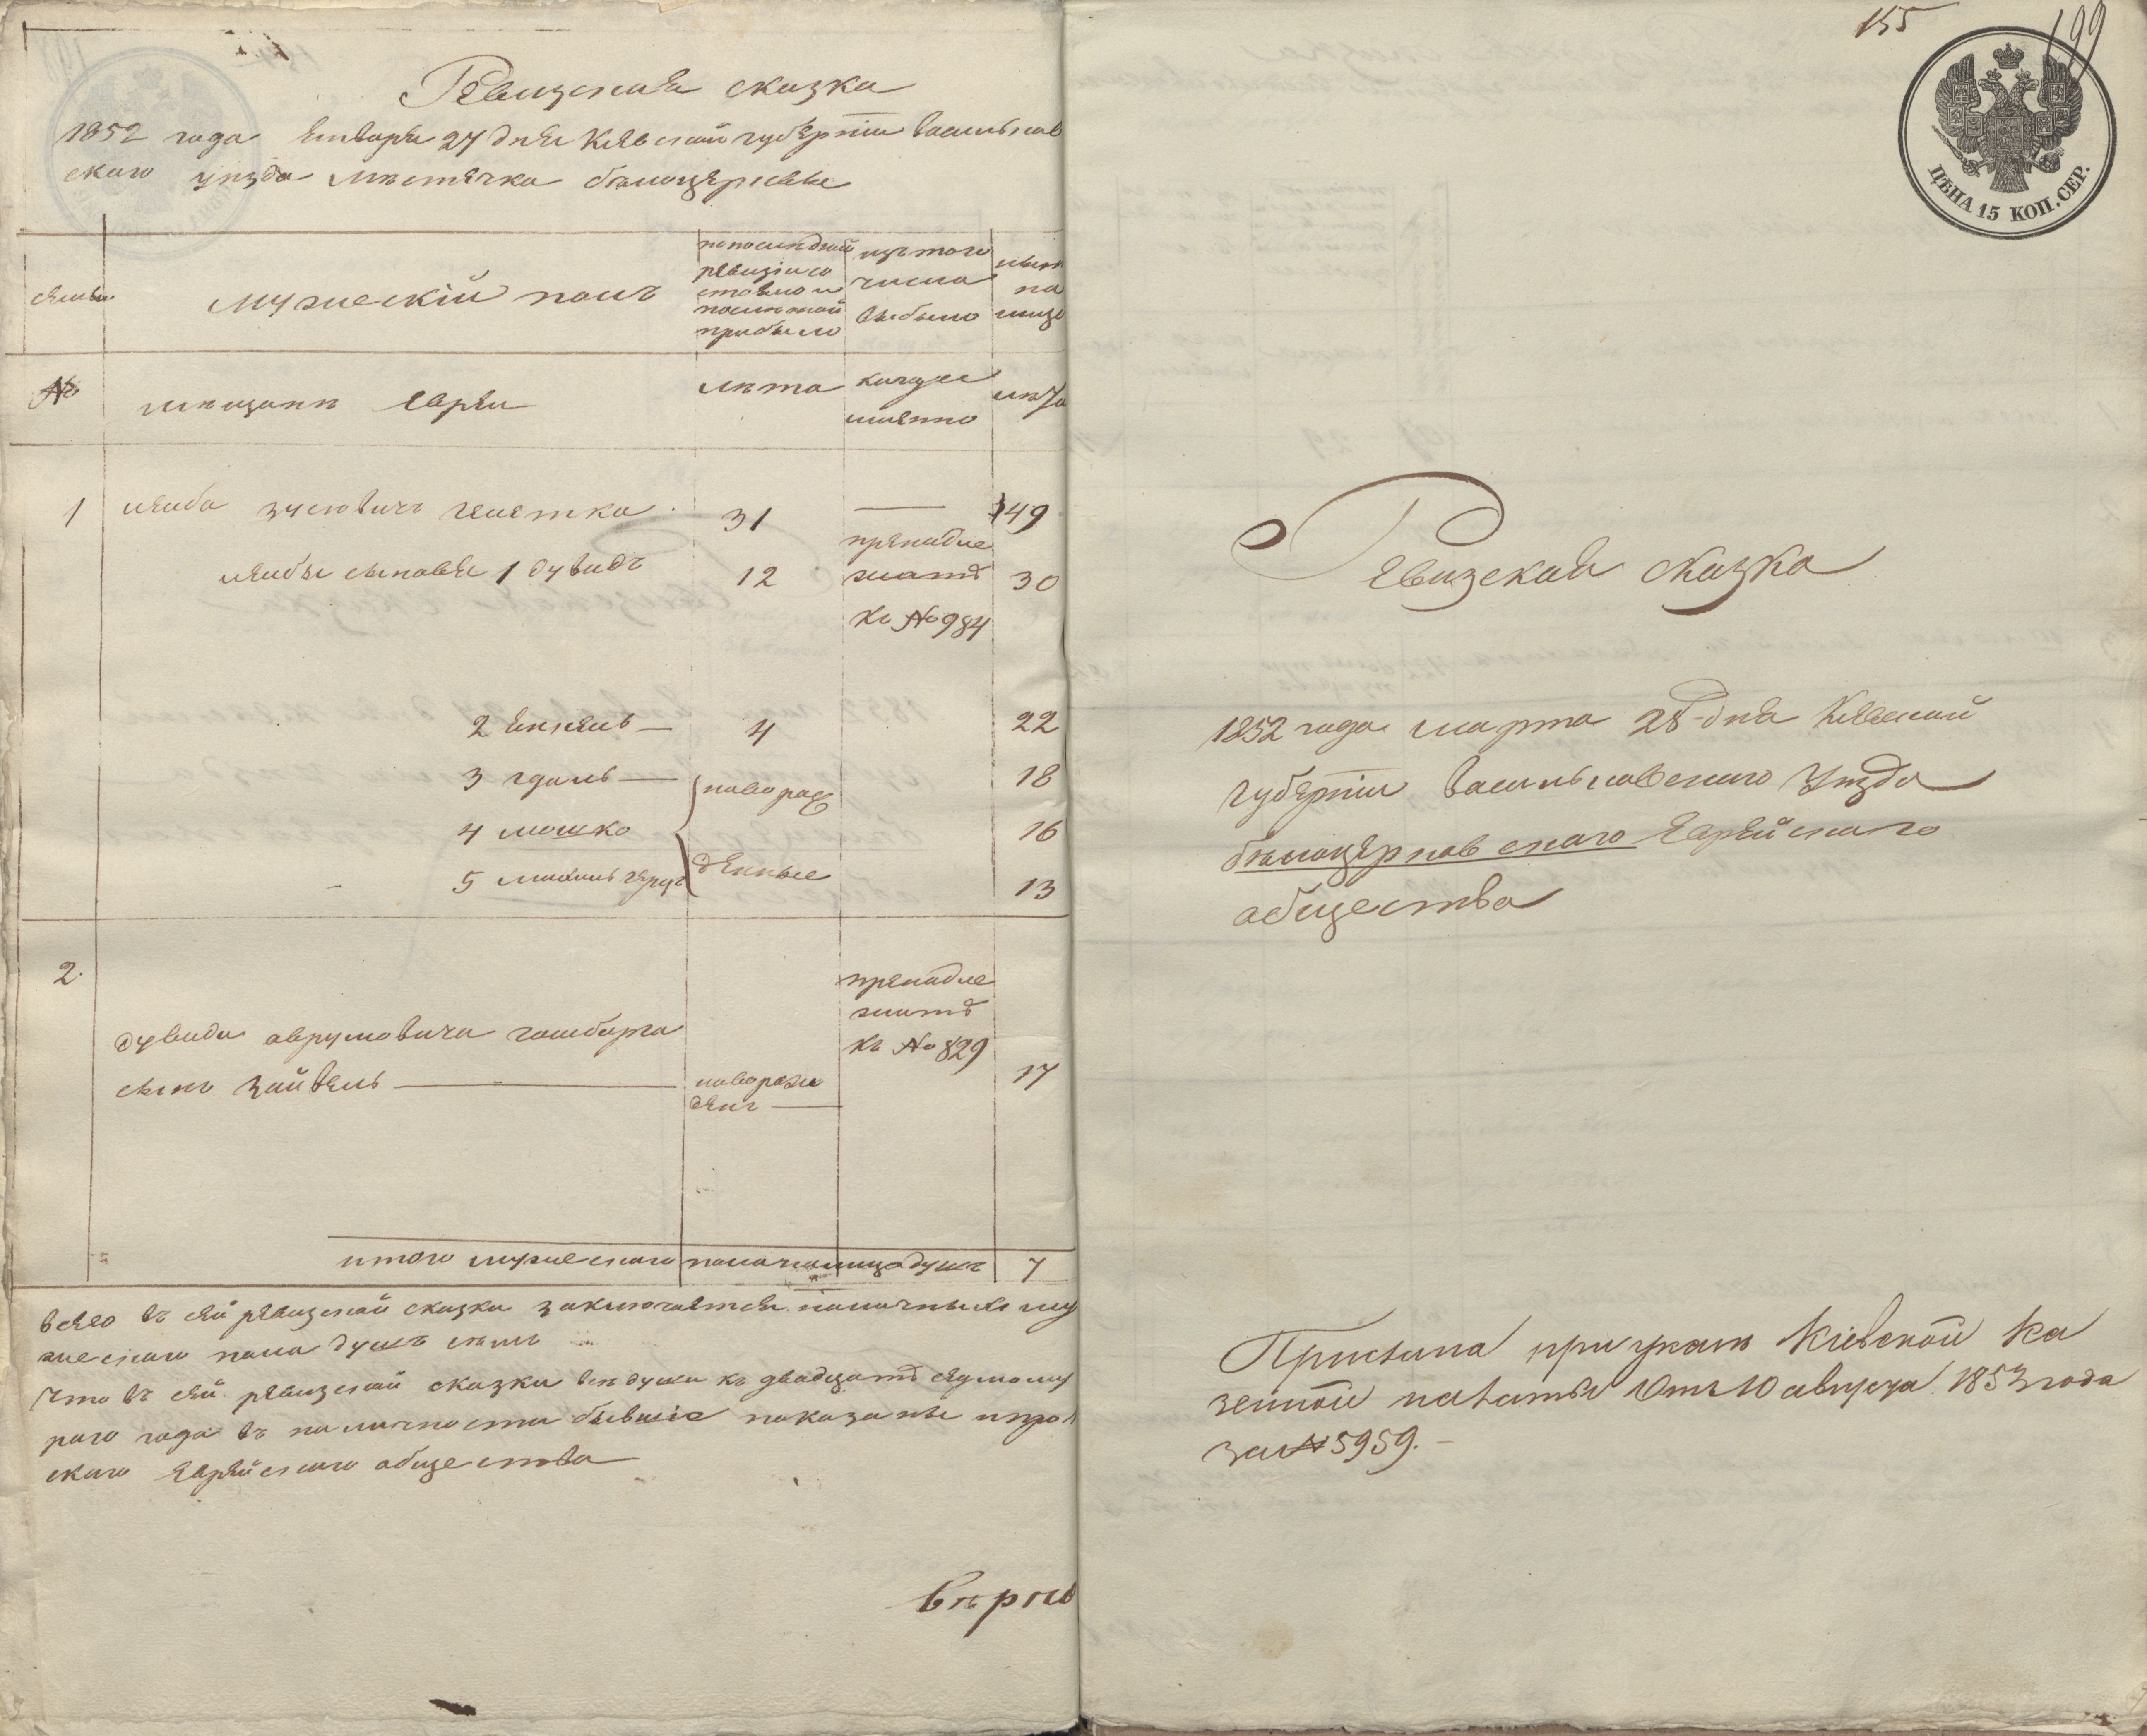 Ревизская сказка
1852 года Января 27 дня Киевской губернiи васильков
скаго уезда местечка белоцеркве
семьи.
мужескiй полъ
по последней
ревизiи со
стояло и
после оной
прибыло
изъ того
числа
выбыло
ныне
на
лицо
№
мещане Евреи
лета
когда
именно
лета
1
лейба зуслвичъ
31
49
лейбы сыновья 1 дувидъ
12
принадле
жатъ
къ № 984
30
2 Янкель
4
22
3 гдаль
новорож
18
4 мошко
16
5
денные
13
2.
принадле
жатъ
къ № 829
дувида аврумовича голбарга
сынъ зайвель
новорож
денъ
17
итого мужескаго пола налицо душъ 7
всего въ сей ревизской сказки заключается наличныхъ му
жескаго пола душъ семь
Что въ сей ревизской сказки все души къ двадцать седмому
раго года въ наличности бывшiе показаны
скаго Еврейскаго общества
верно
155
199
ЦѢНА 15 КОП. СЕР.
Ревизская сказка
1852 года марта 28 дня Киевской
губернiи васильковскаго уезда
белоцерковскаго Еврейскаго
общества
Прислана при указе Кiевской Ка
зенной палаты отъ 10 августа 1853 года
за № 5959.